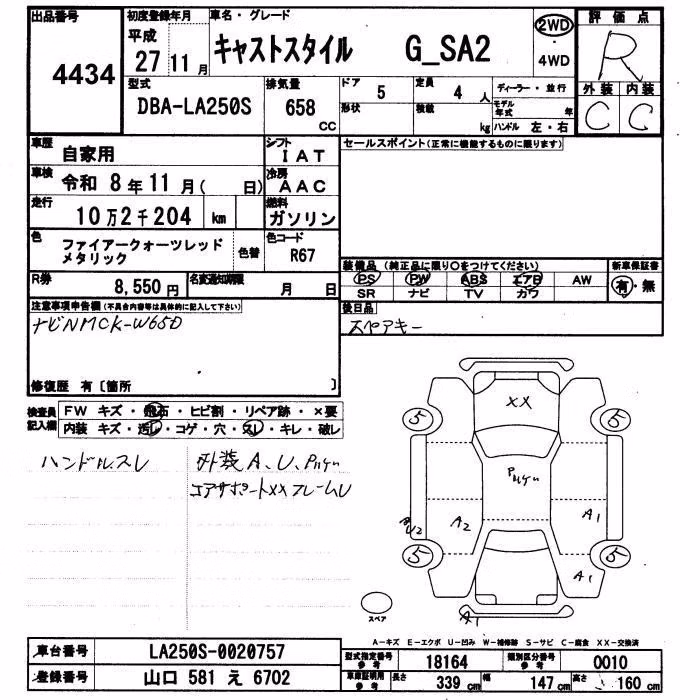 出品番号 初度登録年月 車名・グレード 評価点
4434 平成 27 11月 キャストスタイル G_SA2 2WD 4WD R
型式 DBA-LA250S 排気量 658 CC ドア 5 定員 4人 ディーラー・並行 外装 内装
形状 積載 kg モデル年式 年 ハンドル 左・右 C C
車歴 自家用 シフト IAT セールスポイント(正常に機能するものに限ります)
車検 令和 8年 11月( 日) 冷房 AAC
走行 10万2千204 km 燃料 ガソリン
色 ファイアークォーツレッド メタリック 色替 色コード R67
装備品 (純正品に限り○をつけてください) 新車保証書
R券 8,550円 名変通知期限 月 日 PS PW ABS エアB AW 有・無
SR ナビ TV カワ
注意事項申告欄(不具合内容等は具体的に記入して下さい) 後日品
ナビNMCK-W65D スペアキー
修復歴 有〔箇所 〕
検査員記入欄 FW キズ・飛石・ヒビ割・リペア跡・×要
内装 キズ・汚レ・コゲ・穴・スレ・キレ・破レ
ハンドルスレ 外装A、U、Pハゲ
コアサポートXX フレームU
XX
5 5
Pハゲ
AU2 A2 A1
5 5
A1
スペア A1
A-キズ E-エクボ U-凹み W-補修跡 S-サビ C-腐食 XX-交換済
車台番号 LA250S-0020757 型式指定番号 参考 18164 類別区分番号 参考 0010
登録番号 山口 581 え 6702 車庫証明用 参考 長さ 339 cm 幅 147 cm 高さ 160 cm